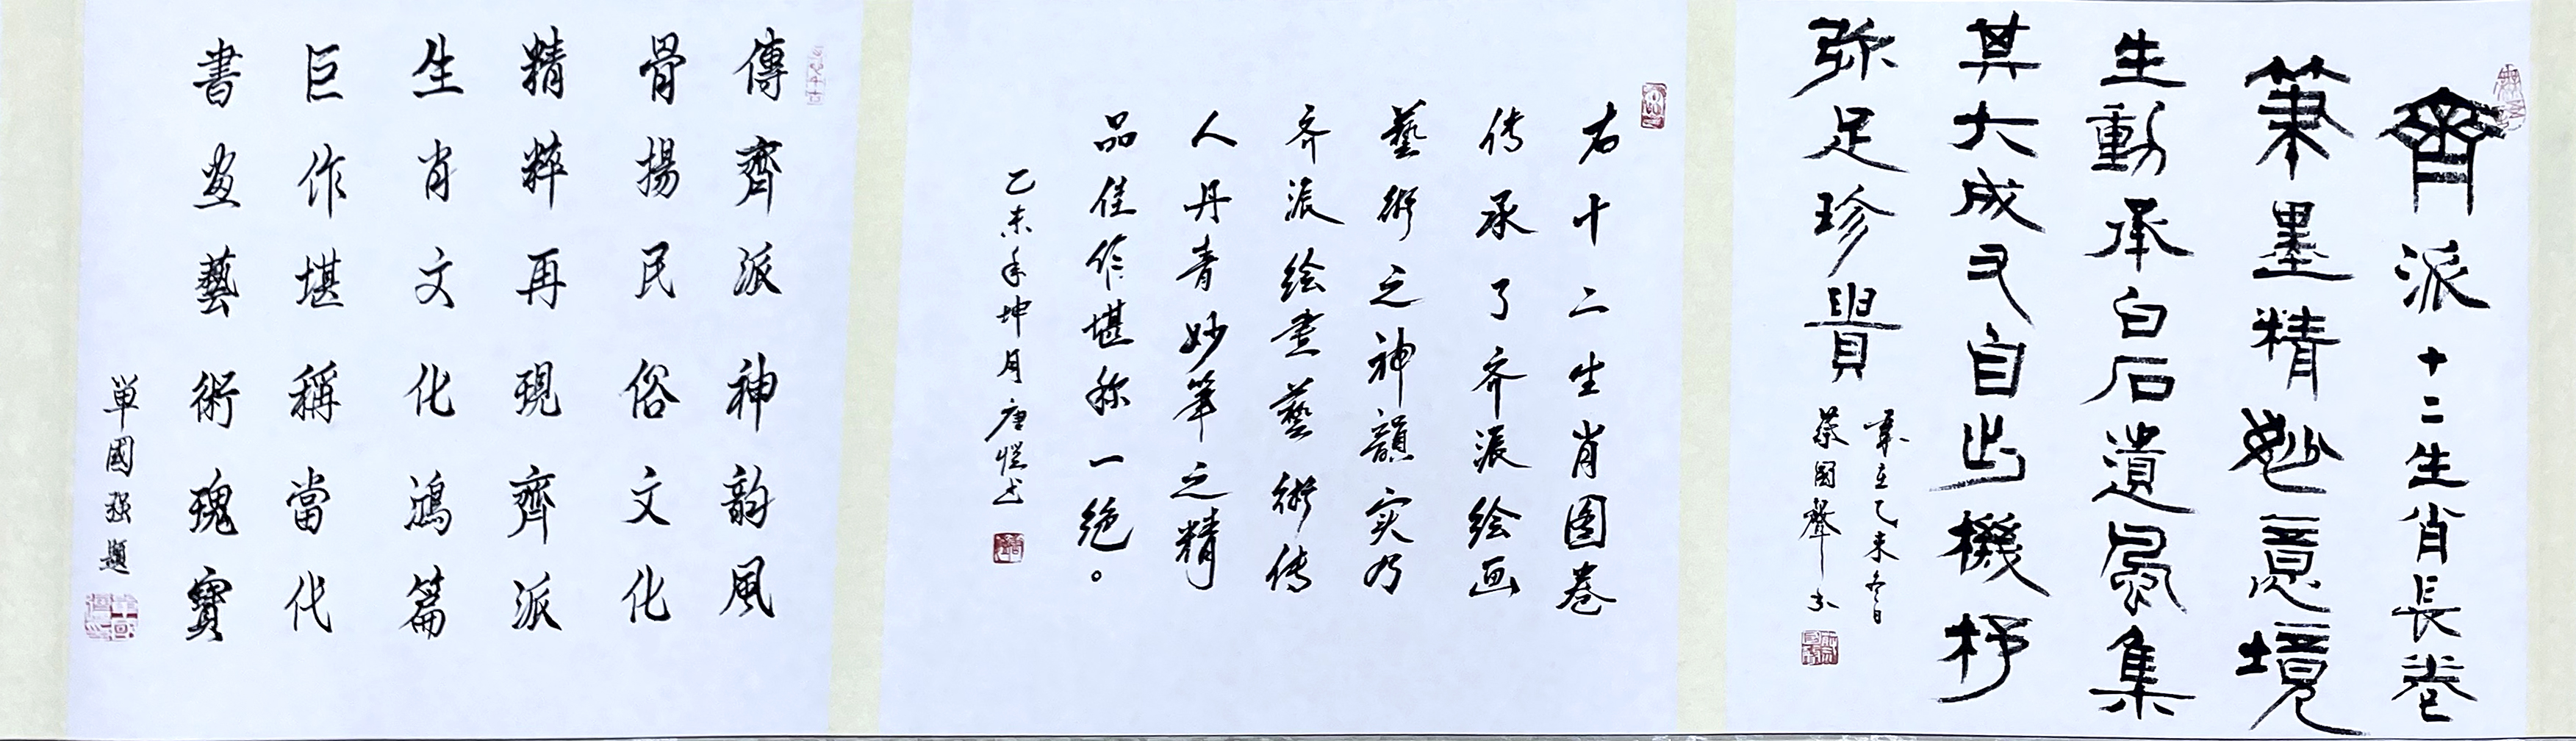 齊派十二生肖長卷
筆墨精妙意境
生動承白石遺風集
其大成又自出機杼
弥足珍貴
歲在乙未冬日
蔡國聲書
右十二生肖图卷
传承了齐派绘画
藝術之神韻实乃
齐派绘畫藝術传
人丹青妙筆之精
品佳作堪称一绝。
乙未年坤月唐恺述
傳齊派神韵風
骨揚民俗文化
精粹再現齊派
生肖文化鴻篇
巨作堪稱當代
書畫藝術瑰寶
單國強題